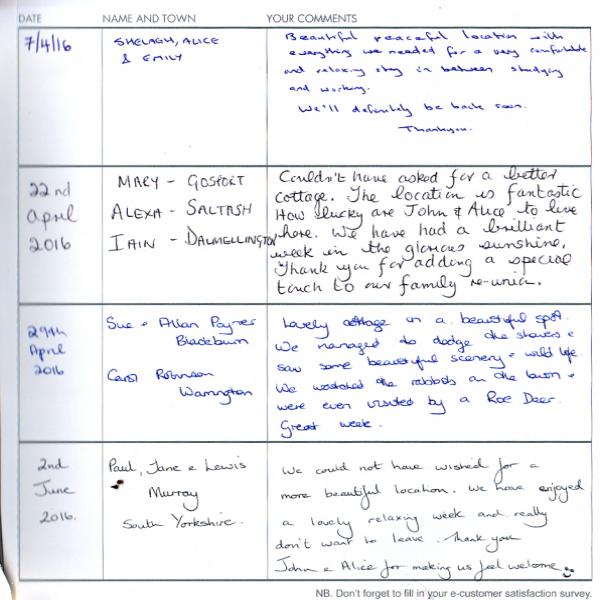 DATE NAME AND TOWN YOUR COMMENTS
7/4/16
SHELAGH, ALICE
& EMILY
Beautiful peaceful location with
everything we needed for a very comfortable
and relaxing stay in between studying
and working.
We'll definitely be back soon.
Thankyou.
22nd
April
2016
MARY - GOSPORT
ALEXA - SALTASH
IAIN - DALMELLINGTON
Couldn't have asked for a better
cottage. The location is fantastic
How lucky are John & Alice to live
here. We have had a brilliant
week in the glorious sunshine.
Thank you for adding a special
touch to our family re-union.
29th
April
2016
Sue + Allan Payner
Blackburn
Carol Robinson
Warrington
Lovely cottage in a beautiful spot.
We managed to dodge the showers +
saw some beautiful scenery + wild life
We watched the rabbits on the lawn +
were even visited by a Roe Deer.
Great week.
2nd
June
2016.
Paul, Jane + Lewis
Murray
South Yorkshire.
We could not have wished for a
more beautiful location. We have enjoyed
a lovely relaxing week and really
don't want to leave. Thank you
John + Alice for making us feel welcome
NB. Don't forget to fill in your e-customer satisfaction survey.